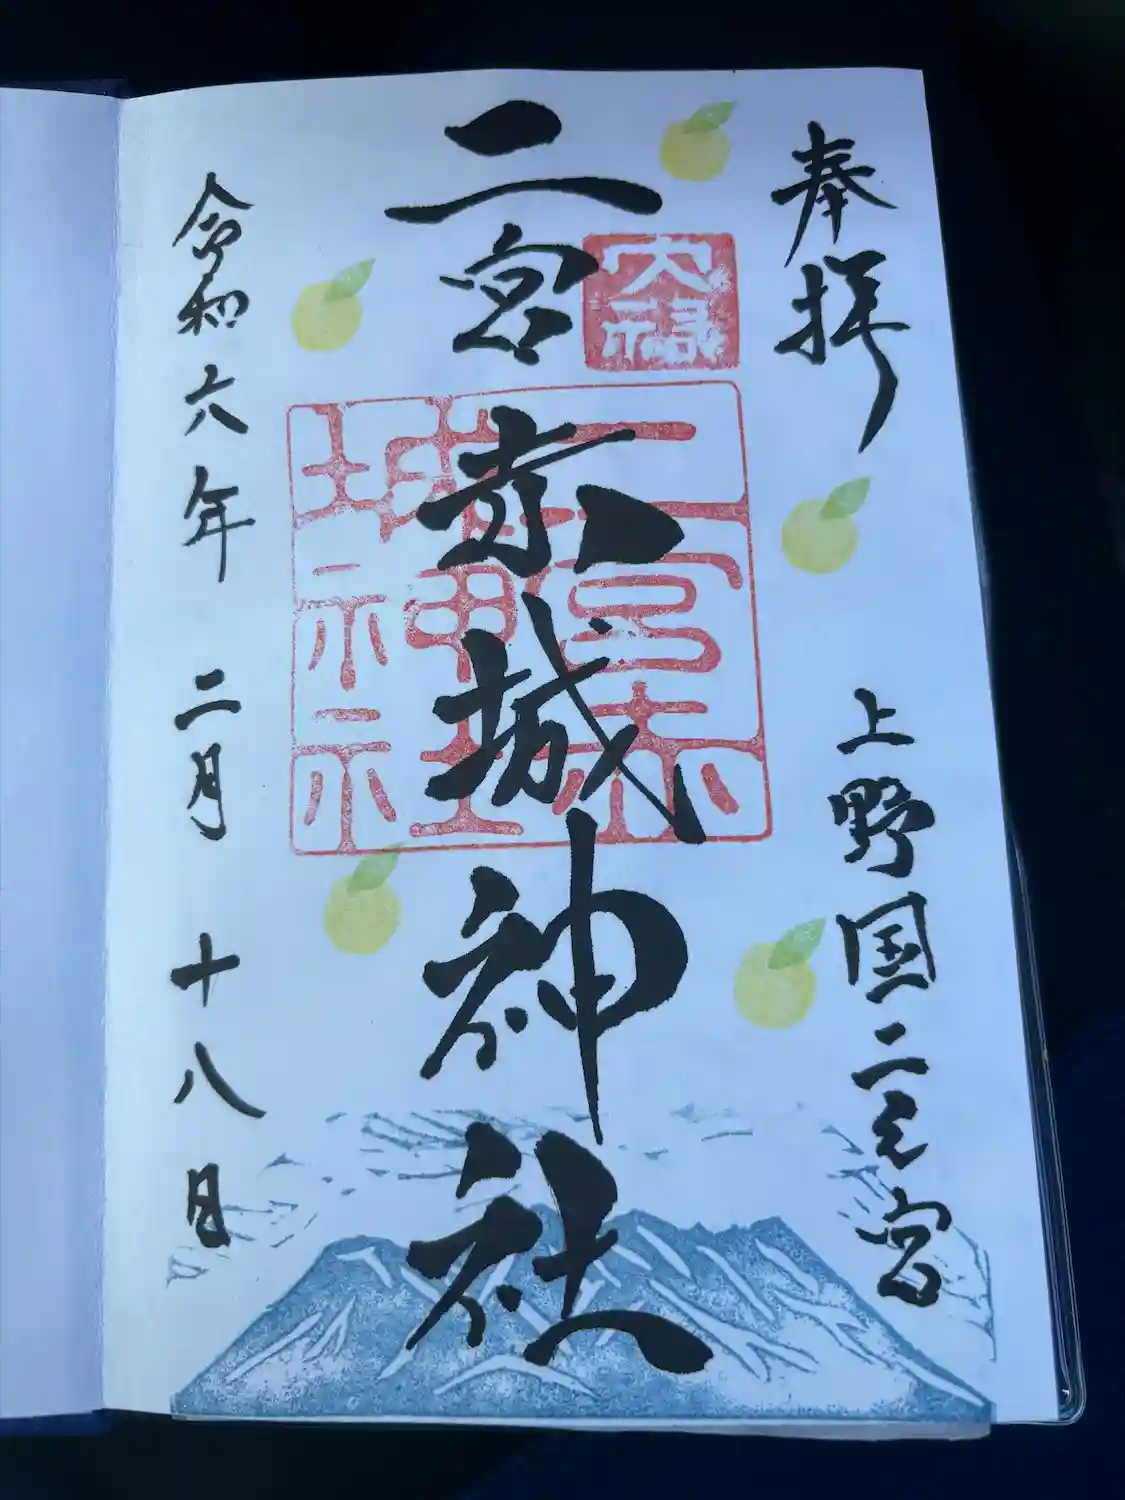 奉拝
上野国二之宮
二宮赤城神社
二宮赤
城神社
令和六年二月十八日